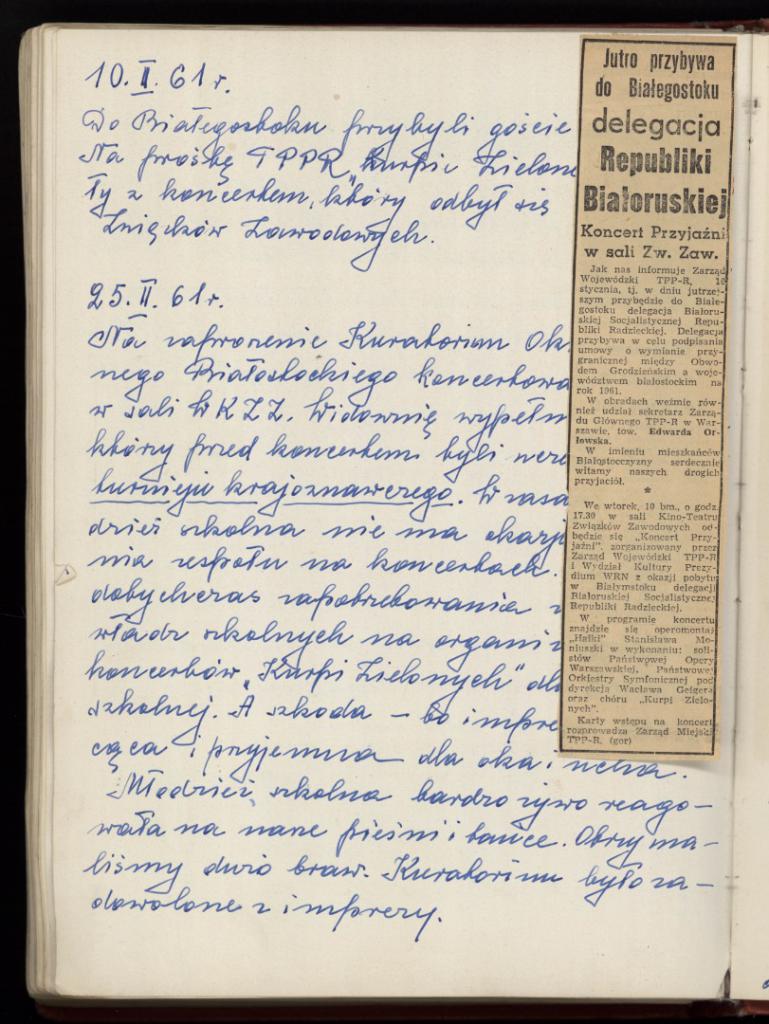 10. II. 61 r.
Do Białegostoku przybyli goście
Na prośbę TPPR „Kurpie Zielone
ły z koncertem, który odbył się
Związków Zawodowych.
25. II. 61 r.
Na zaproszenie Kuratorium Ok
nego Białostockiego koncertowa
w sali WKZZ. Widownię wypełn
którzy przed koncertem byli ucze
turnieju krajoznawczego. W zasa
dzież szkolna nie ma okazji
nia zespołu na koncertach.
dotychczas zapotrzebowania z
władz szkolnych na organiz
koncertów „Kurpi Zielonych" dla
szkolnej. A szkoda – bo impre
cąca i przyjemna dla oka i ucha.
Młodzież szkolna bardzo żywo reago-
wała na nasze pieśni i tańce. Otrzyma-
liśmy dużo braw. Kuratorium było za-
dowolone z imprezy.
Jutro przybywa
do Białegostoku
delegacja
Republiki
Białoruskiej
Koncert Przyjaźni
w sali Zw. Zaw.
Jak nas informuje Zarząd
Wojewódzki TPP-R, 10
stycznia, tj. w dniu jutrzej-
szym przybędzie do Białe-
gostoku delegacja Białoru-
skiej Socjalistycznej Repu-
bliki Radzieckiej. Delegacja
przybywa w celu podpisania
umowy o wymianie przy-
granicznej między Obwo-
dem Grodzieńskim a woje-
wództwem białostockim na
rok 1961.
W obradach weźmie rów-
nież udział sekretarz Zarzą-
du Głównego TPP-R w War-
szawie, tow. Edwarda Or-
łowska.
W imieniu mieszkańców
Białostocczyzny serdecznie
witamy naszych drogich
przyjaciół.
*
We wtorek, 10 bm., o godz.
17.30 w sali Kino-Teatru
Związków Zawodowych od-
będzie się „Koncert Przy-
jaźni", zorganizowany przez
Zarząd Wojewódzki TPP-R
i Wydział Kultury Prezy-
dium WRN z okazji pobytu
w Białymstoku delegacji
Białoruskiej Socjalistycznej
Republiki Radzieckiej.
W programie koncertu
znajdzie się operomontaż
„Halki" Stanisława Mo-
niuszki w wykonaniu: soli-
stów Państwowej Opery
Warszawskiej, Państwowej
Orkiestry Symfonicznej pod
dyrekcją Wacława Geigera
oraz chóru „Kurpi Zielo-
nych".
Karty wstępu na koncert
rozprowadza Zarząd Miejski
TPP-R. (gor)